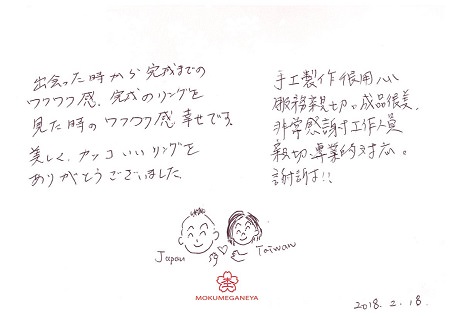 出会った時から完成までの
ワクワク感、完成のリングを
見た時のワクワク感 幸せです。
美しく、カッコいいリングを
ありがとうございました。
手工製作很用心
服務親切。成品很美、
非常感謝工作人員
親切、專業的対応。
謝謝!!
Japan
Taiwan
MOKUMEGANEYA
2018. 2. 18.